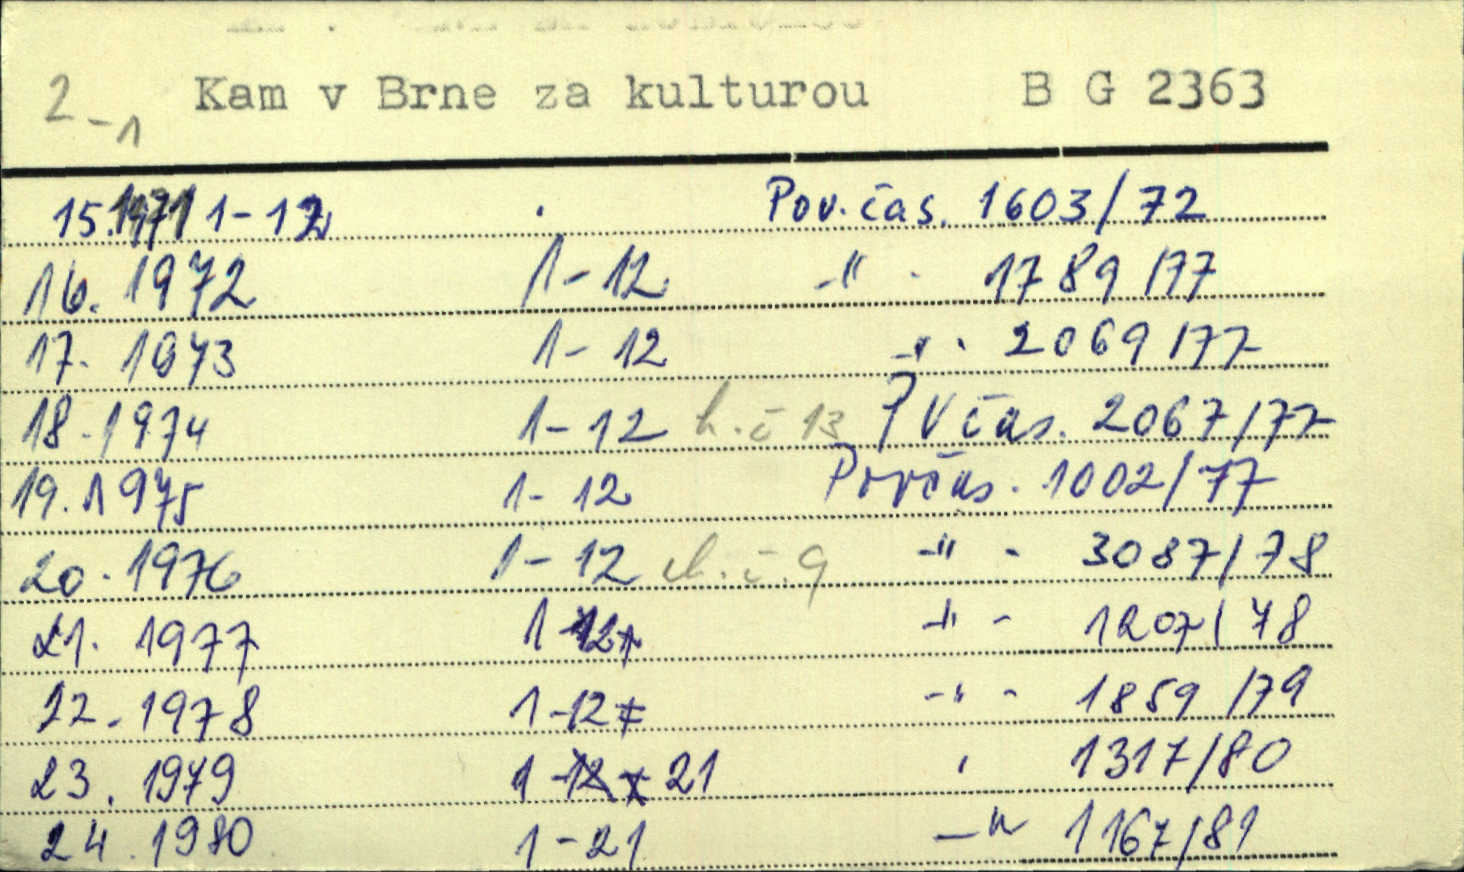 2-1 Kam v Brne za kulturou B G 2363
15. 1971 1-12 Pov. čas. 1603/72
16. 1972 1-12 -"- 1789/77
17. 1973 1-12 -"- 2069/77
18. 1974 1-12 h.č 13 PV čas. 2067/77
19. 1975 1-12 Pov čas. 1002/77
20. 1976 1-12 ch.č.9 -"- 3087/78
21. 1977 1-12+ -"- 1207/78
22. 1978 1-12+ -"- 1859/79
23. 1979 1-21 " 1317/80
24. 1980 1-21 -"- 1167/81